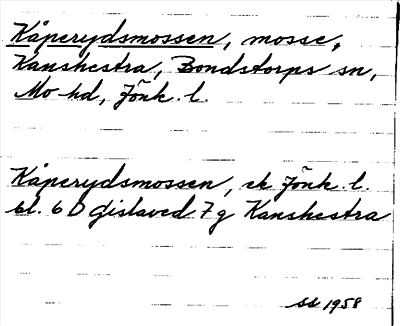 Kåperydsmossen, mosse,
Kanshestra, Bondstorps sn,
Mo hd, Jönk. l.
Kåperydsmossen, ek Jönk. l.
bl. 6 D Gislaved 7 g Kanshestra
1958